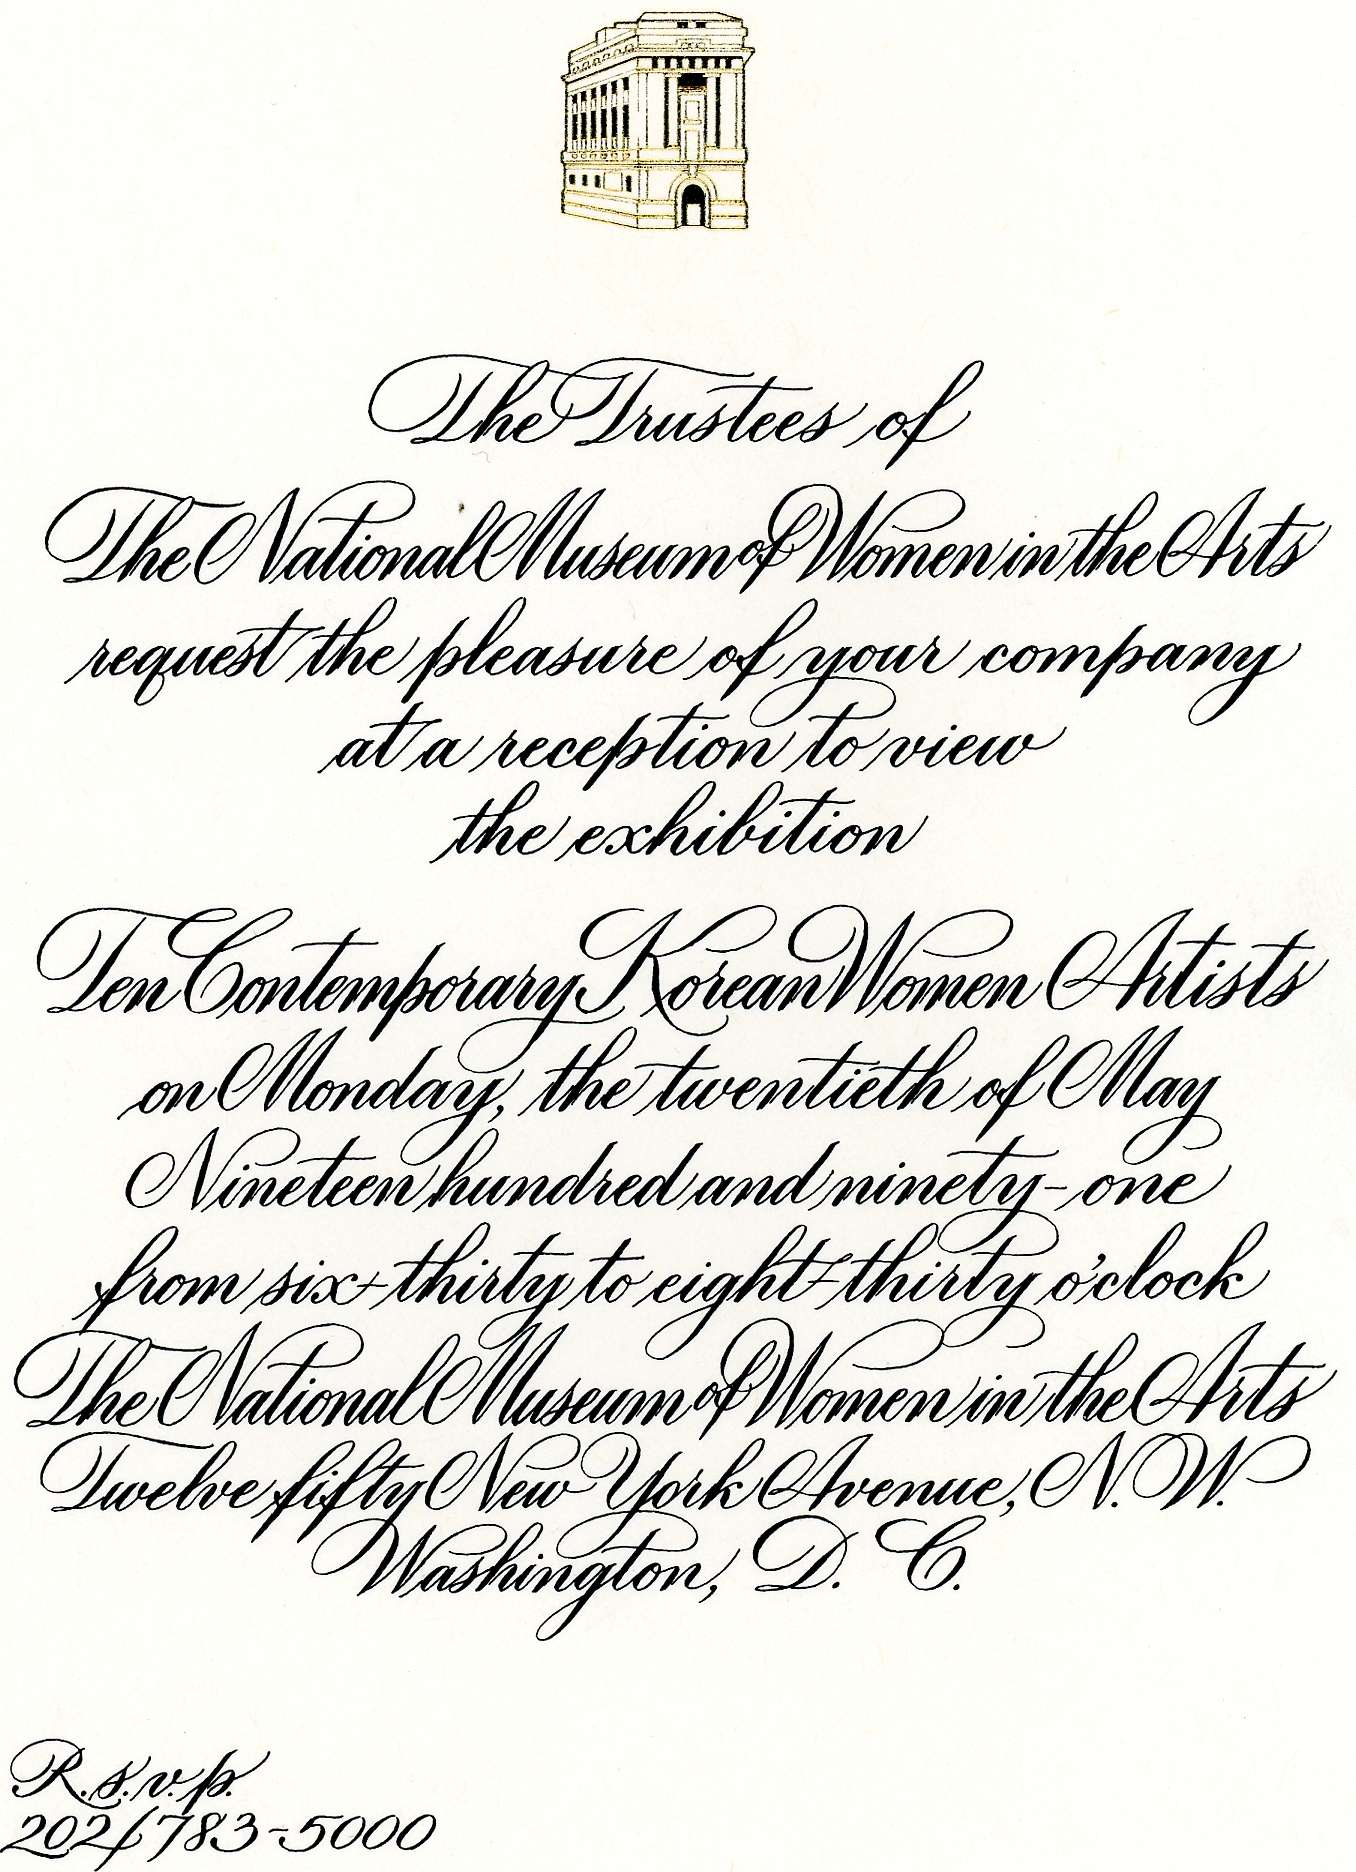 The Trustees of
The National Museum of Women in the Arts
request the pleasure of your company
at a reception to view
the exhibition
Ten Contemporary Korean Women Artists
on Monday, the twentieth of May
Nineteen hundred and ninety-one
from six-thirty to eight-thirty o'clock
The National Museum of Women in the Arts
Twelve fifty New York Avenue, N. W.
Washington, D. C.
R.s.v.p.
202/783-5000